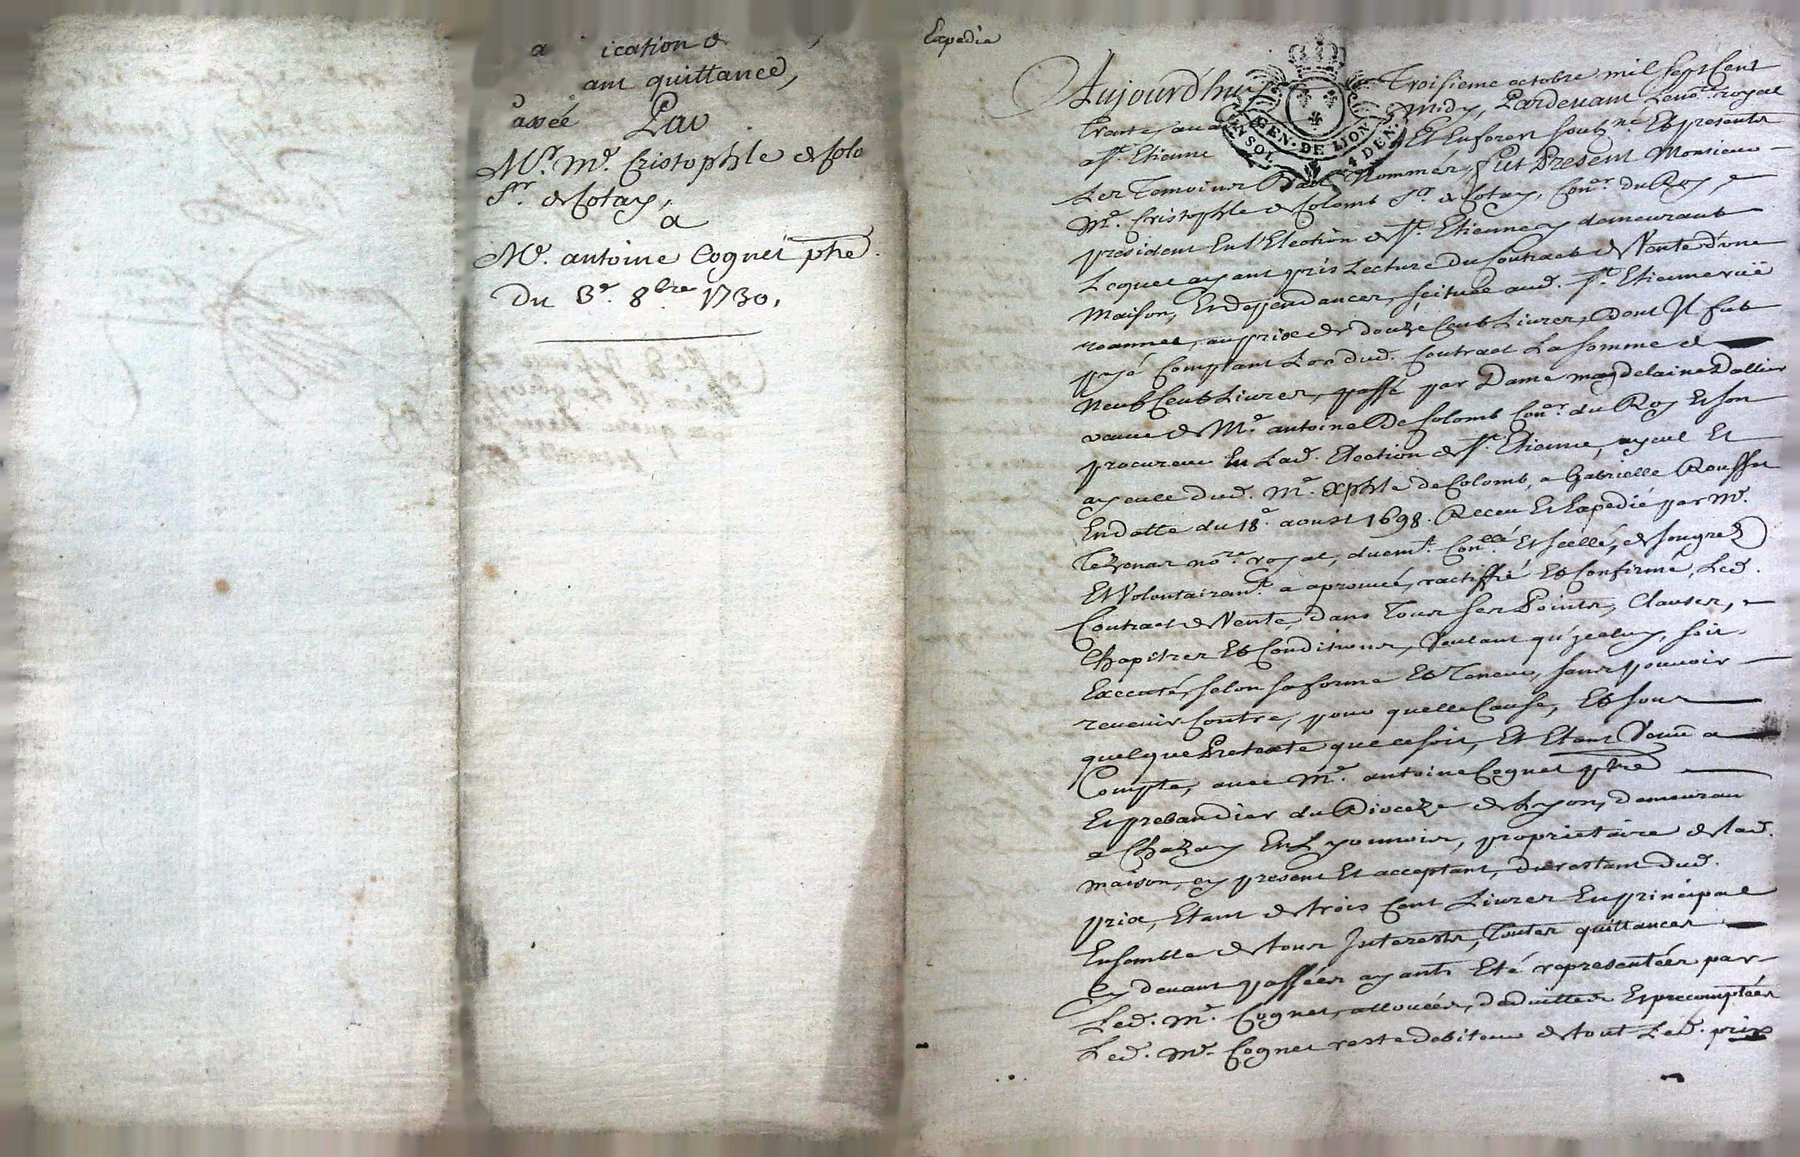 ication &
ant quittance,
passée Par
Mr. Me. Cristophle de Colo
Sr. de Cotay,
a
Me. antoine Cognet ptre.
Du 3e. 8bre 1730.
Expedie
Aujourd'huy Troisieme octobre mil sept Cent
trente, avant midy, Pardevant Le nore. royal
a St. Etienne Et En forez soubzne. Et presents
Les Temoins Bas Nommés, fut Present Monsieur
Me. Cristophle de Colomb Sr. de Cotay, Coner. du Roy,
president En l'Election de St. Etienne y demeurant
Lequel ayant pris Lecture du Contract de Vente d'une
Maison, Et dependances, scituée aud. St. Etienne rüe
roannel, au prix de douze Cent Livres, Dont Il fut
payé Comptant Lors dud. Contract La somme de
Neuf Cent Livres, passé par Dame magdelaine Dallier
veuve de Me. antoine De Colomb Coner. du Roy Et son
procureur En Lad. Election de St. Etienne, ayeul Et
ayeule dud. Me. Xphle de Colomb, a Gabrielle Rousset
En datte du 18e. aoust 1698. Receu Et Expedié par Me.
Tezenas nore. royal, duemt. Conllé. Et scéllé, de son gré
Et Volontairemt. a aprouvé, ractiffié Et Confirmé, Led.
Contract de Vente dans Tous ses Points, Clauses,
Chapitres Et Conditions, Voulant qu'jceluy, soit
Executé, selon sa forme Et Teneur, sans pouvoir
revenir Contre, pour quelle Cause, Et sous
quelque Pretexte que ce soit, Et Etant Venu a
Compte, avec Me. antoine Cognet ptre
Et prebandier du Dioceze de Lyon, demeurant
a Chazay En Lyonnois, proprietaire de lad.
maison, cy present Et acceptant, du restant dud.
prix, Etant de trois Cent Livres En principal
Ensemble de tous Interests, Toutes quittances
cy devant passées ayants Eté representées par
Led. Me. Cognet, allouées, deduittes Et precomptées
Led. Me. Cognet reste debiteur de tout Led. prix
GEN. DE LION
UN SOL 4 DEN.